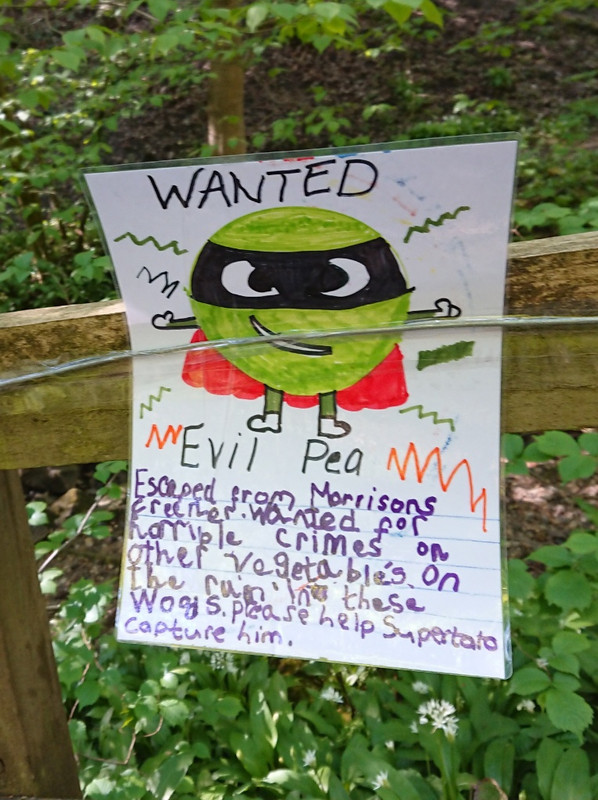 WANTED
Evil Pea
Escaped from Morrisons
Freezer. Wanted for
horrible crimes on
other vegetable's. On
the run in these
Woods. please help Supertato
capture him.